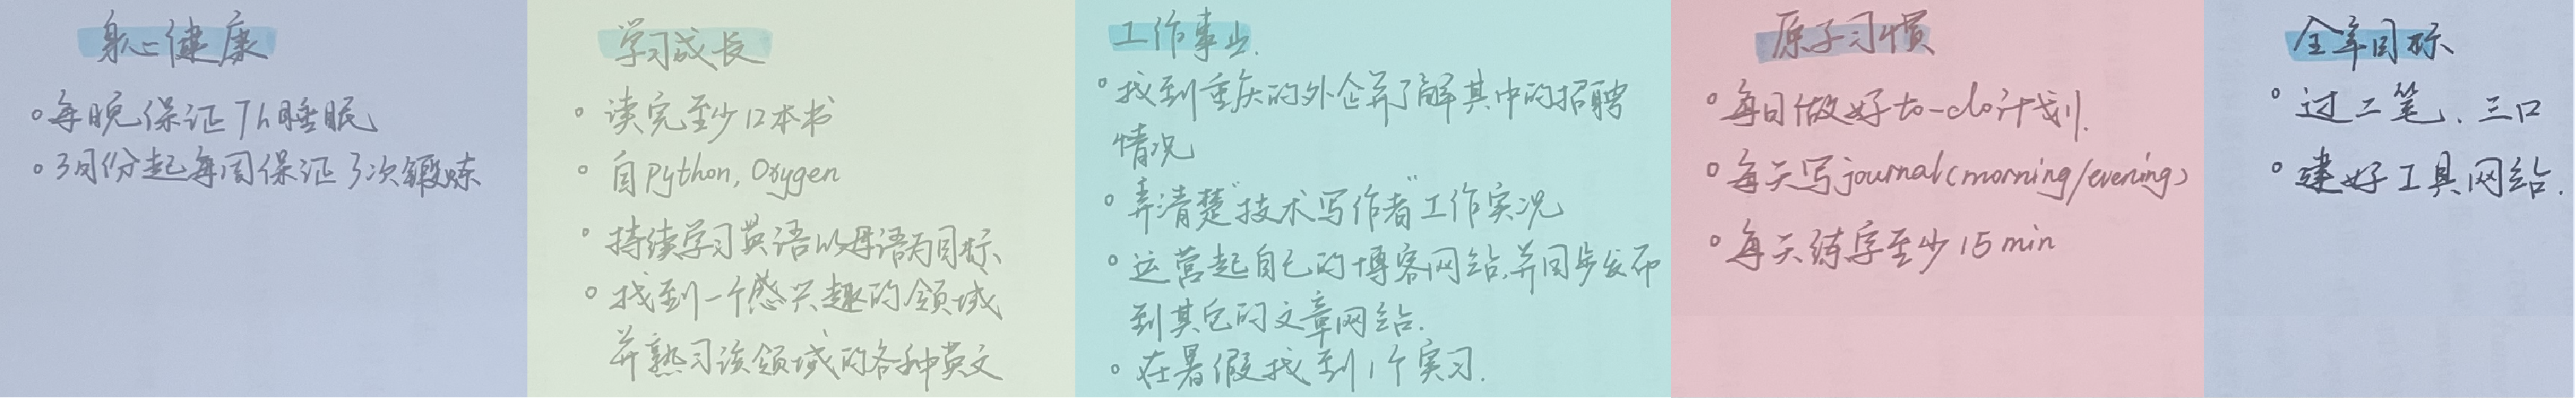 身心健康
。每晚保证7h睡眠
。3月份起每周保证3次锻炼
学习成长
。读完至少12本书
。自Python, Oxygen
。持续学习英语以母语为目标、
。找到一个感兴趣的领域
并熟习该领域的各种英文
工作事业.
。找到重庆的外企并了解其中的招聘
情况
。弄清楚"技术写作者"工作实况
。运营起自己的博客网站,并同步发布
到其它的文章网站.
。在暑假找到1个实习.
原子习惯
。每日做好to-do计划.
。每天写journal(morning/evening)
。每天练字至少15min
全年目标
。过二笔、三口
。建好工具网站.